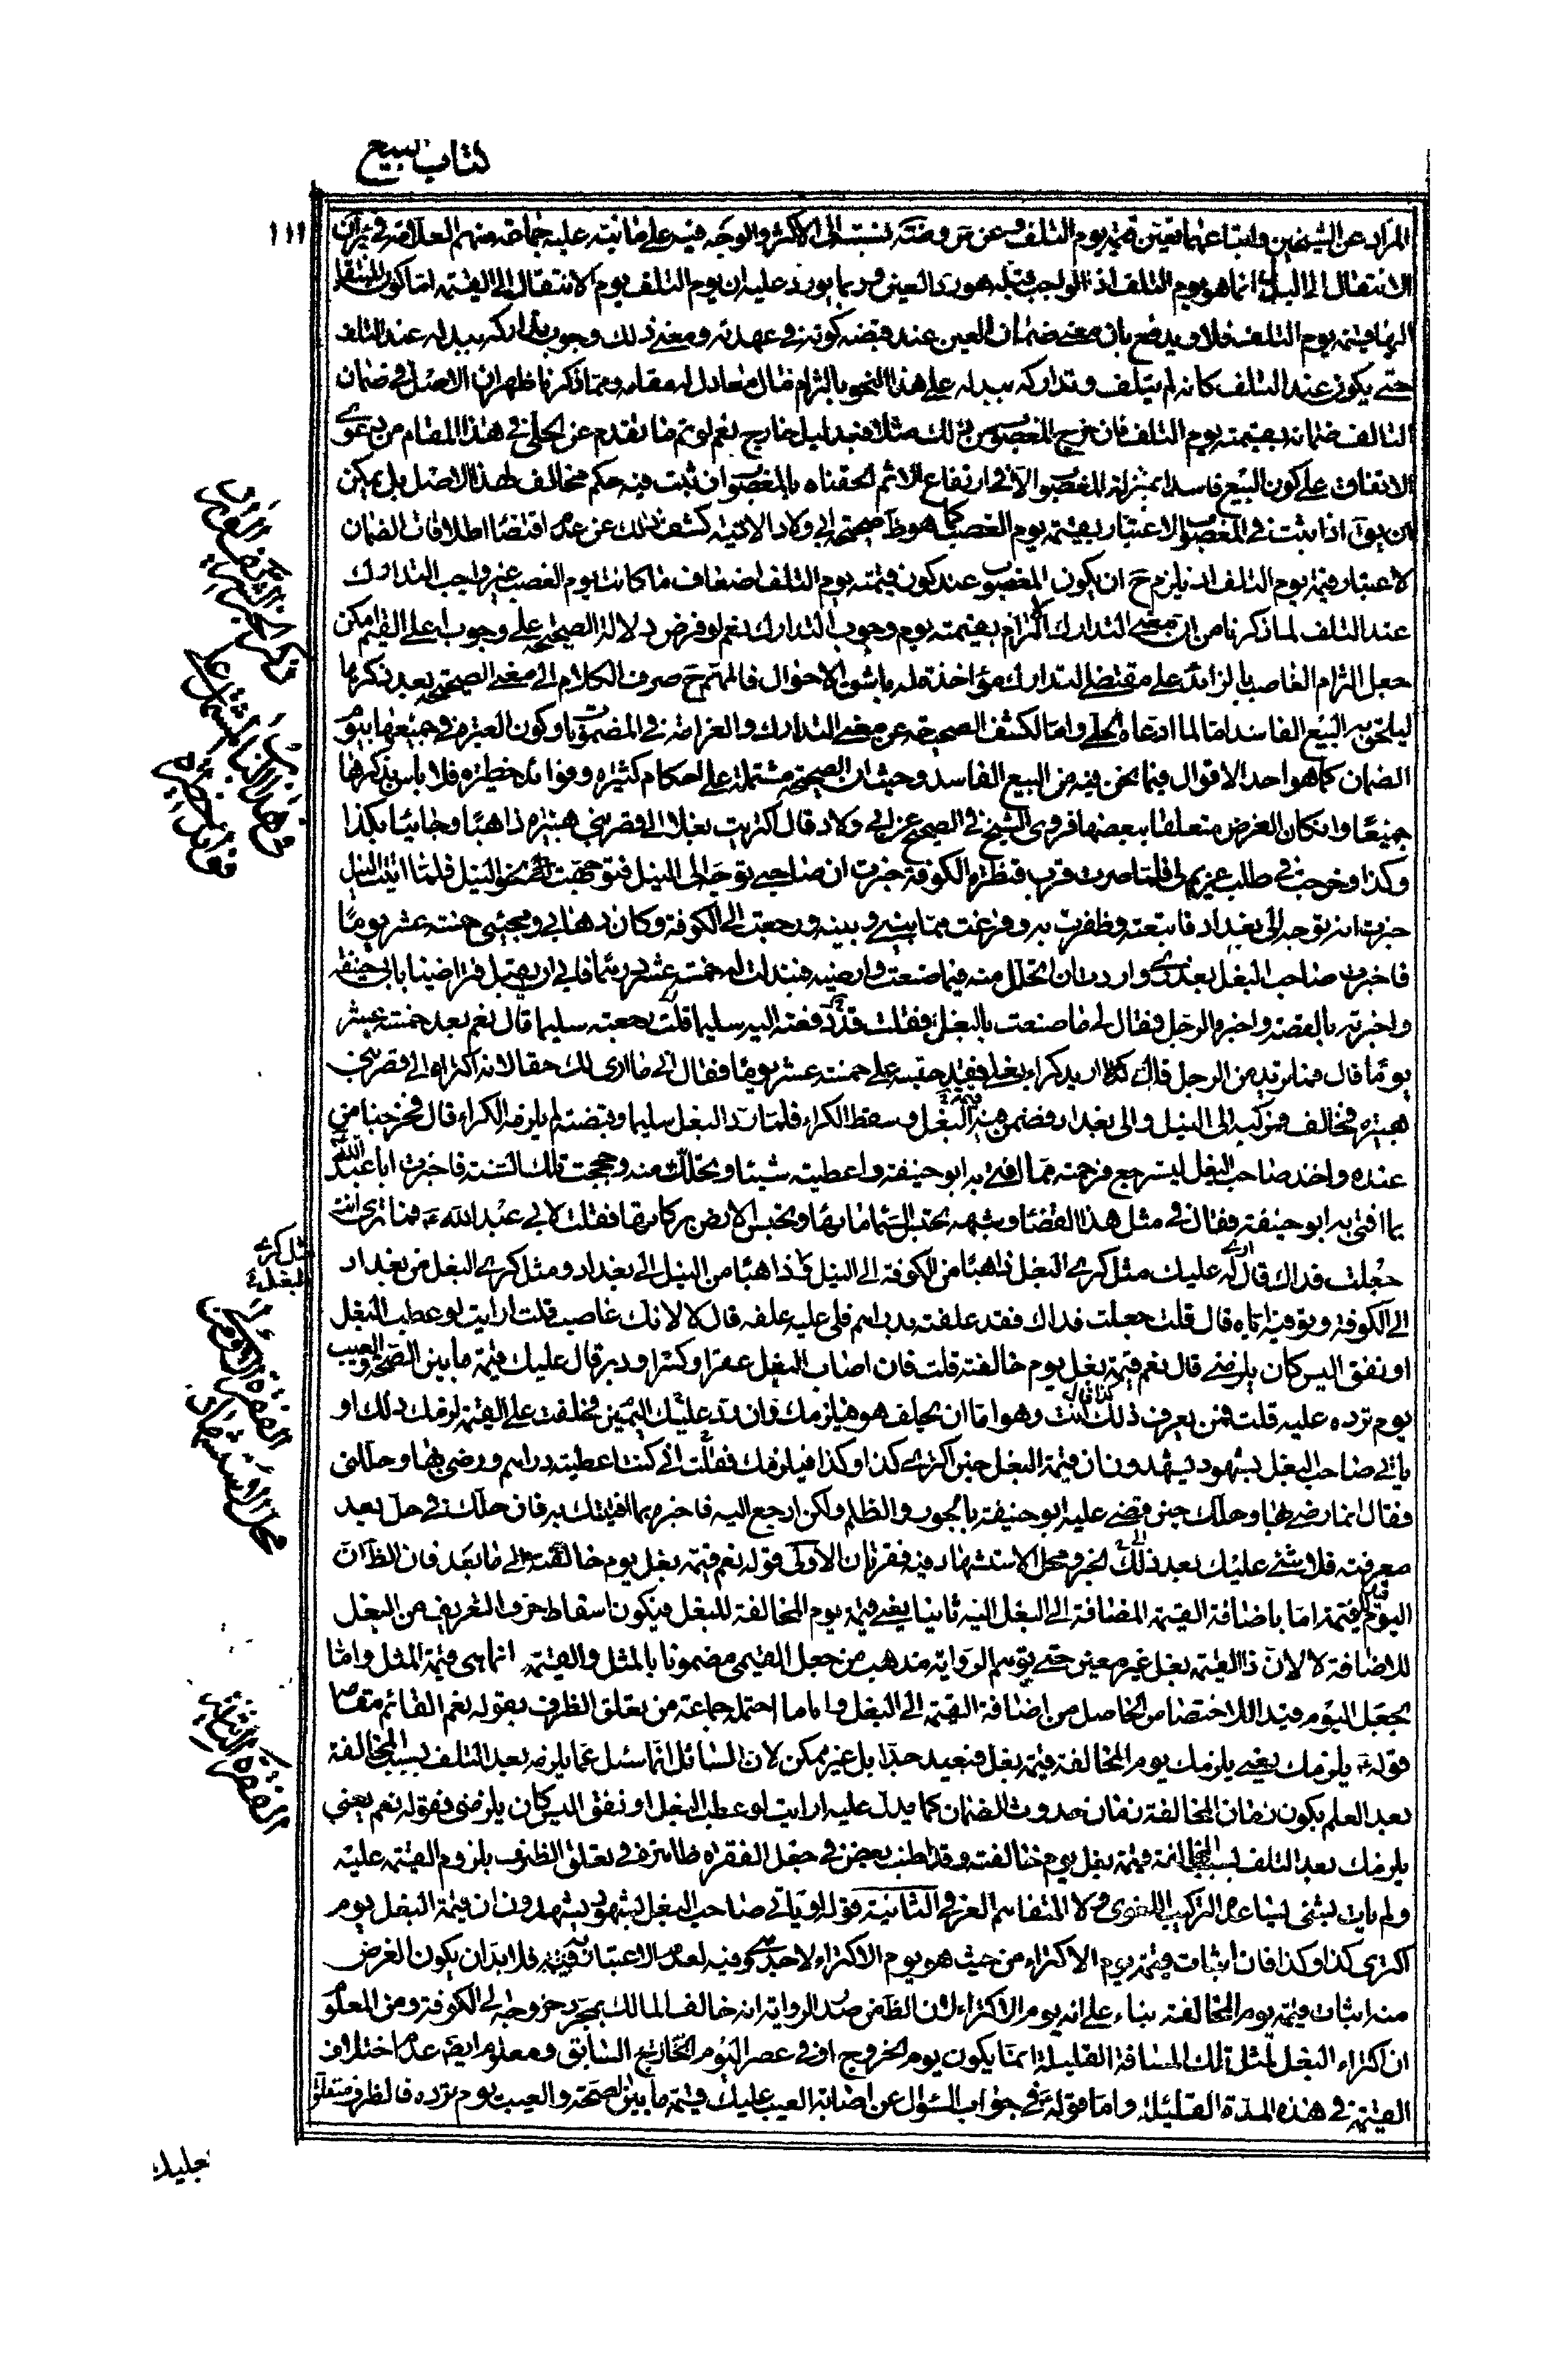 كتاب البيع
١١١
المراد عن الشيخين واتباعهما تعيّن قيمته يوم التلف وعن س وضته نسبته الى الاكثر والوجه فيه على ما نبّه عليه جماعة منهم العلامة في ير ان
الانتقال الى البدل انما هو يوم التلف اذ الواجب قبله هو رد العين وربما يورد عليه ان يوم التلف يوم الانتقال الى القيمة اما كون المنتقل
اليها قيمة يوم التلف فلا ويدفع بان معنى ضمان العين عند قبضه كونه في عهدته ومعنى ذلك وجوب تداركه ببدله عند التلف
حتى يكون عند التلف كانه لم يتلف وتداركه ببدله على هذا النحو بالتزام مال معادل له مقامه ومما ذكرنا ظهر ان الاصل في ضمان
التالف ضمانه بقيمته يوم التلف فان خرج المغصوب من ذلك مثلا فبدليل خارج نعم لو تم ما تقدم عن الحلي في هذا المقام من دعوى
الاتفاق على كون البيع فاسدا بمنزلة المغصوب الا في ارتفاع الاثم الحقناه بالمغصوب ان ثبت فيه حكم مخالف لهذا الاصل بل يمكن
ان يق اذا ثبت في المغصوب الاعتبار بقيمته يوم الغصب كما هو ظ صحيحة ابي ولاد الاتية كشف ذلك عن عدم اقتضاء اطلاقات الضمان
لاعتبار قيمة يوم التلف اذ يلزم ح ان يكون المغصوب عند كون قيمته يوم التلف اضعاف ما كانت يوم الغصب غير واجب التدارك
عند التلف لما ذكرنا من ان معنى التدارك التزام بقيمته يوم وجوب التدارك نعم لو فرض دلالة الصحيحة على وجوب اعلى القيم امكن
جعل التزام الغاصب بالزائد على مقتضى التدارك مؤاخذة له باشق الاحوال فالمهم ح صرف الكلام الى معنى الصحيحة بعد ذكرها
ليلحق به البيع الفاسد اما لما ادعاه الحلي واما لكشف الصحيحة عن معنى التدارك والغرامة في المضمونات وكون العبرة في جميعها بيوم
الضمان كما هو احد الاقوال فيما نحن فيه من البيع الفاسد وحيث ان الصحيحة مشتملة على احكام كثيرة وفوائد خطيرة فلا باس بذكرها
جميعا وان كان الغرض متعلقا ببعضها فروى الشيخ في الصحيح عن ابي ولاد قال اكتريت بغلا الى قصر بني هبيرة ذاهبا وجائيا بكذا
وكذا وخرجت في طلب غريم لى فلما صرت قرب قنطرة الكوفة خبرت ان صاحبي توجه الى النيل فتوجهت نحو النيل فلما اتيت النيل
خبرت انه توجه الى بغداد فاتبعته وظفرت به وفرغت مما بيني وبينه ورجعت الى الكوفة وكان ذهابي ومجيئي خمسة عشر يوما
فاخبرت صاحب البغل بعذري واردت ان اتحلل منه فيما صنعت وارضيه فبذلت له خمسة عشر درهما فابى ان يقبل فتراضينا بابى حنيفة
واخبرته بالقصة واخبره الرجل فقال لى ما صنعت بالبغل فقلت قد دفعته اليه سليما قلت رجعته سليما قال نعم بعد خمسة عشر
يوما قال فما تريد من الرجل قال اريد كراء بغلي فقد حبسه علي خمسة عشر يوما فقال انى ما ارى لك حقا لانه اكتراه الى قصر بني
هبيرة فخالف فركبه الى النيل والى بغداد فضمن قيمة البغل وسقط الكراء فلما رد البغل سليما وقبضته لم يلزمه الكراء قال فخرجنا من
عنده واخذ صاحب البغل ليسترجع فرحمته مما افتى به ابو حنيفة واعطيته شيئا وتحللت منه وحججت تلك السنة فاخبرت ابا عبد الله ع
بما افتى به ابو حنيفة فقال في مثل هذا القضاء وشبهه تحبس السماء ماءها وتحبس الارض بركاتها فقلت لابي عبد الله ع فما ترى انت
جعلت فداك قال ارى له عليك مثل كرى البغل ذاهبا من الكوفة الى النيل وذاهبا من النيل الى بغداد ومثل كرى البغل من بغداد
الى الكوفة وتوفيه اياه قال قلت جعلت فداك فقد علفته بدراهم فلي عليه علفه قال لا لانك غاصب فقلت ارايت لو عطب البغل
او نفق اليس كان يلزمني قال نعم قيمة بغل يوم خالفته قلت فان اصاب البغل عقر او كسر او دبر قال عليك قيمة ما بين الصحة والعيب
يوم ترده عليه قلت فمن يعرف ذلك قال انت وهو اما ان يحلف هو فيلزمك وان رد عليك اليمين فحلفت على القيمة لزمك ذلك او
ياتى صاحب البغل بشهود يشهدون ان قيمة البغل حين اكرى كذا وكذا فيلزمك فقلت انى كنت اعطيته دراهم ورضي بها وحللنى
فقال انما رضى بها وحلك حين قضى عليه ابو حنيفة بالجور والظلم ولكن ارجع اليه فاخبره بما افتيتك به فان حلك في حل بعد
معرفته فلا شئ عليك بعد ذلك الخبر ومحل الاستشهاد فيه فقرتان الاولى قوله نعم قيمة بغل يوم خالفته الى ما بعد فان الظ ان
اليوم قيد للقيمة اما باضافة القيمة المضافة الى البغل اليه ثانيا يعني قيمة يوم المخالفة للبغل فيكون اسقاط حرف التعريف من البغل
للاضافة لا لان ذا القيمة بغل غير معين حتى توهم الرواية مذهب من جعل القيمي مضمونا بالمثل والقيمة انما هي قيمة المثل واما
بجعل اليوم قيدا للاختصاص الحاصل من اضافة القيمة الى البغل واما ما احتمله جماعة من تعلق الظرف بقوله نعم القائم مقام
قوله ع يلزمك يعني يلزمك يوم المخالفة قيمة بغل فبعيد جدا بل غير ممكن لان السائل انما سئل عما يلزمه بعد التلف بسبب المخالفة
بعد العلم بكون زمان المخالفة زمان حدوث الضمان كما يدل عليه ارايت لو عطب البغل او نفق اليس كان يلزمنى فقوله نعم يعني
يلزمك بعد التلف بسبب المخالفة قيمة بغل يوم خالفته وقد اطنب بعض في جعل الفقرة ظاهرة في تعلق الظرف بلزوم القيمة عليه
ولم يات بشئ يساعده التركيب اللغوي ولا المتفاهم العرفي الثانية قوله او ياتى صاحب البغل بشهود يشهدون ان قيمة البغل يوم
اكترى كذا وكذا فان اثبات قيمة يوم الاكتراء من حيث هو يوم الاكتراء لا جدوى فيه لعدم الاعتبار به فلا بد ان يكون الغرض
منه اثبات قيمة يوم المخالفة بناء على انه يوم الاكتراء لان الظ من صدر الرواية انه خالف المالك بمجرد خروجه الى الكوفة ومن المعلوم
ان اكتراء البغل لمثل تلك المسافة القليلة انما يكون يوم الخروج او في عصر اليوم السابق ومعلوم ايضا عدم اختلاف
القيمة في هذه المدة القليلة واما قوله ع في جواب السؤال عن اصابة العيب عليك قيمة ما بين الصحة والعيب يوم ترده فالظرف متعلق
مثل كرى
البغل
الفقرة الثانية